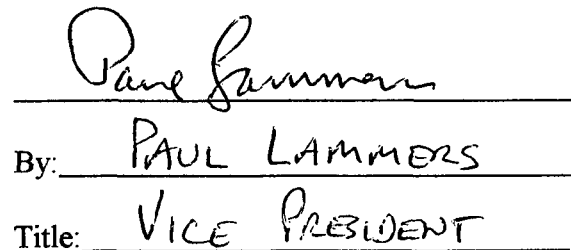 Paul Lammers
By: PAUL LAMMERS
Title: VICE PRESIDENT